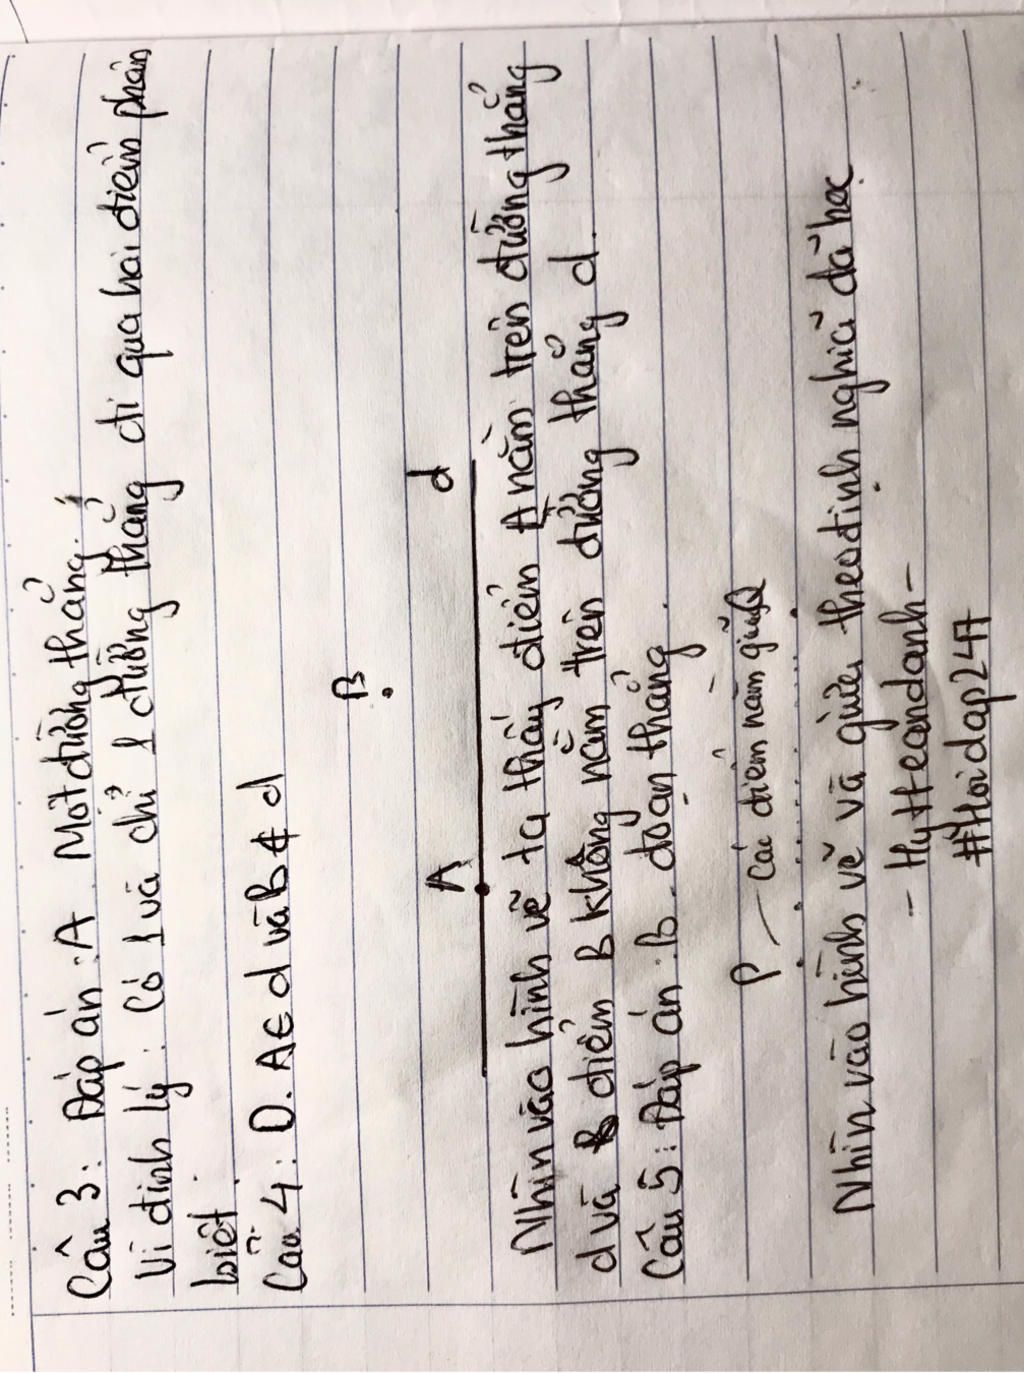 Câu 3: Đáp án: A Một đường thẳng.
Vì định lý: Có 1 và chỉ 1 đường thẳng đi qua hai điểm phân
biệt.
Câu 4: D. A∈d và B∉d
B
A d
Nhìn vào hình vẽ ta thấy điểm A nằm trên đường thẳng
d và điểm B không nằm trên đường thẳng d.
Câu 5: Đáp án: B. đoạn thẳng.
P Các điểm nằm giữa Q
Nhìn vào hình vẽ và giữa theo định nghĩa đã học
- HyHeandanh -
#Hoidap247